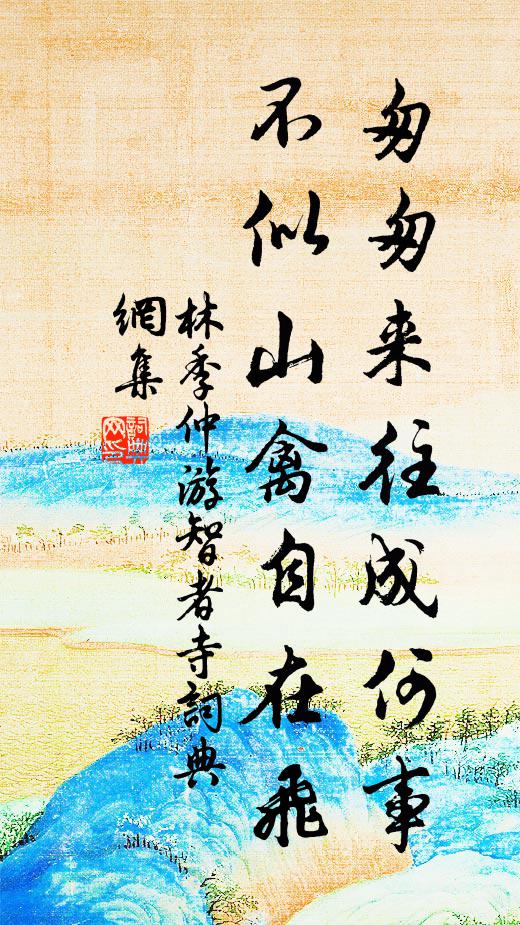 匆匆来往成何事
不似山禽自在飛
林季仲游智者寺詞典
網集
詞典網